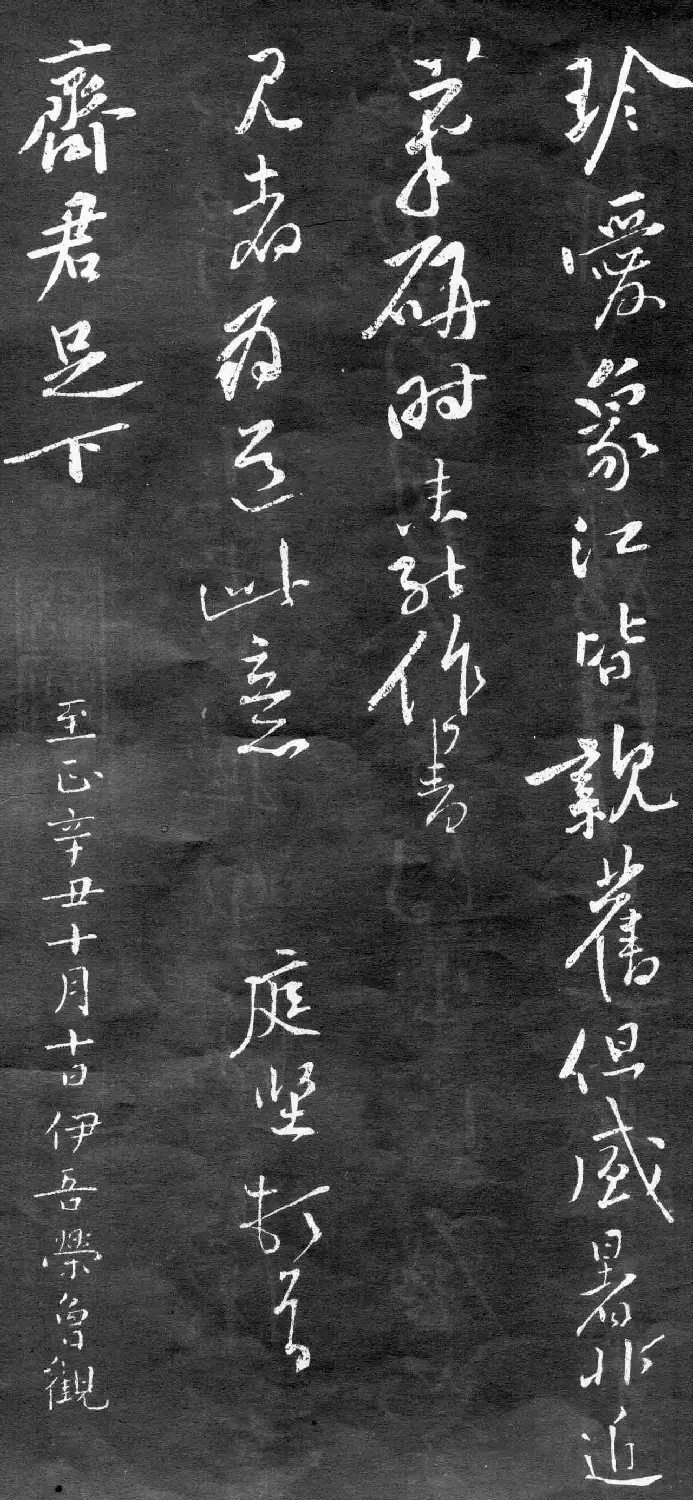 珍愛象江皆親舊但盛暑非近
筆硯时未能作書
見者為道此意　庭堅頓首
齊君足下
至正辛丑十月十日伊吾榮魯觀